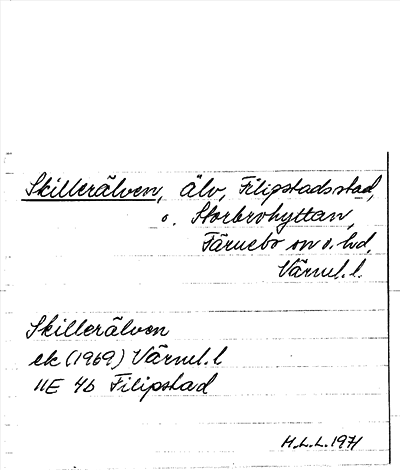 Skillerälven, älv, Filipstads stad,
o. Storbrohyttan,
Färnebo sn o. hd,
Värml. l.
Skillerälven
ek (1969) Värml. l
11E 4b Filipstad
H.L.L. 1971